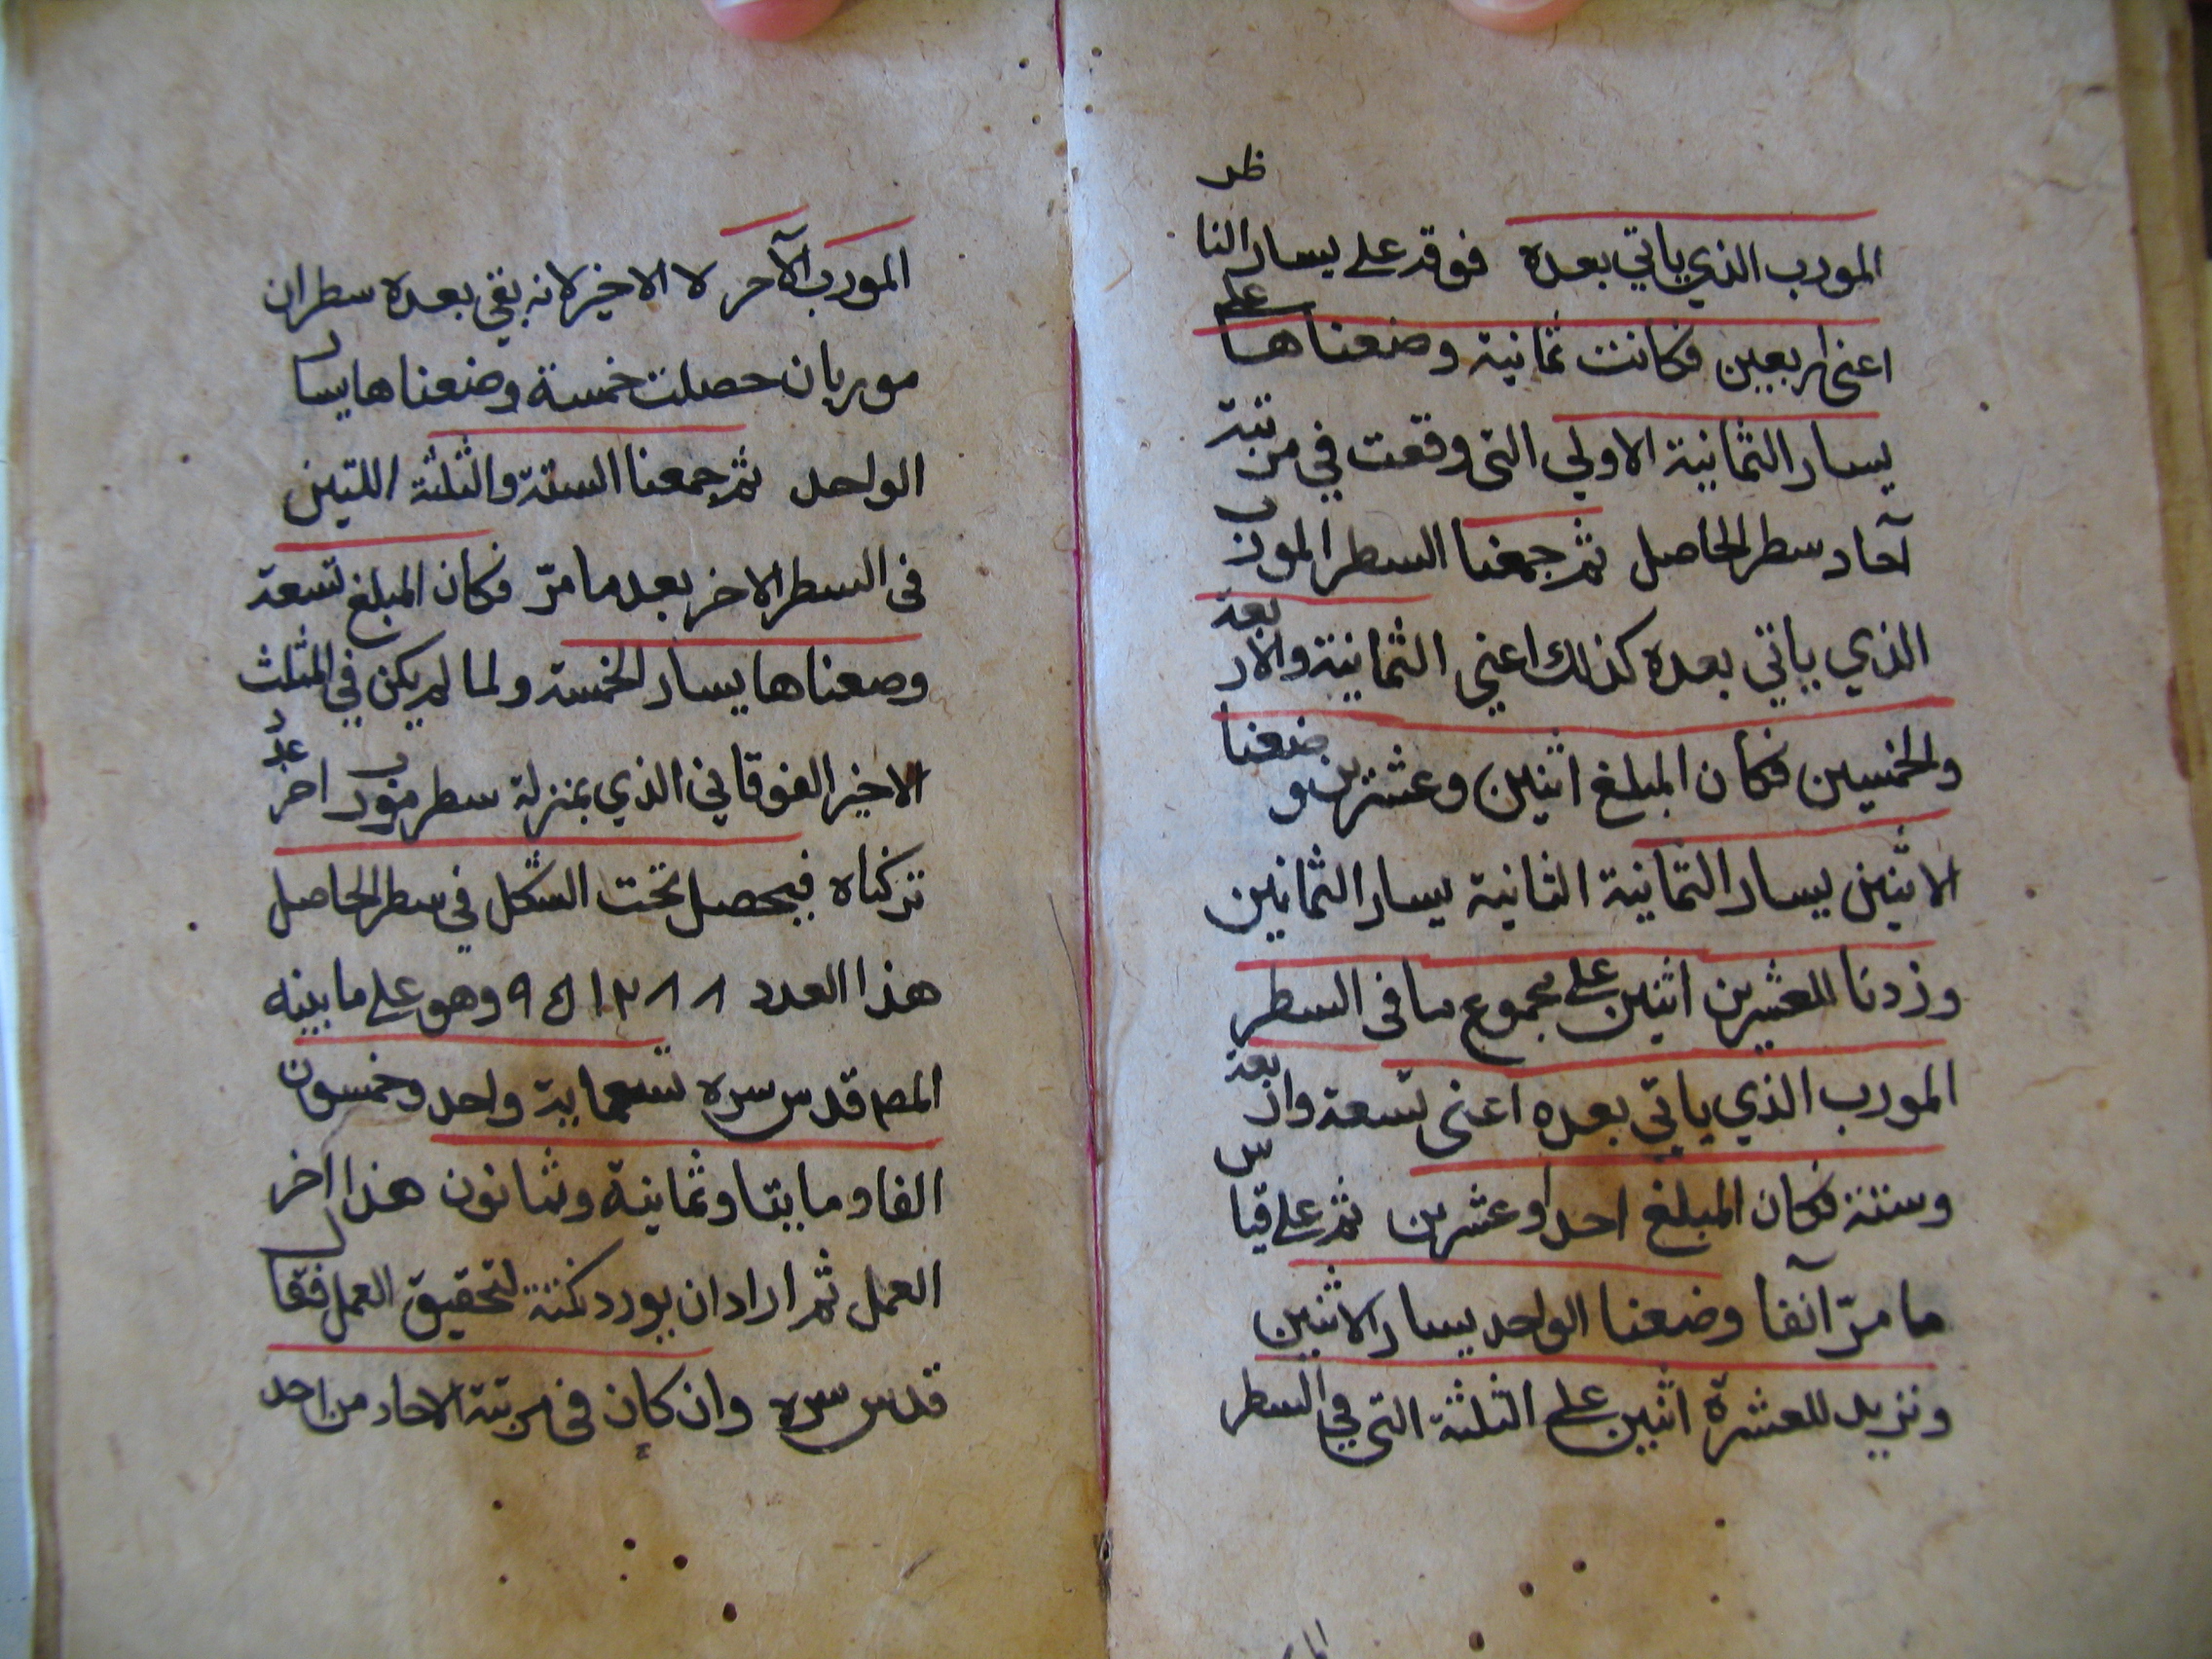 المورب الذي ياتي بعده فوقه على يسار الناظر
اعنى اربعين فكانت ثمانية وضعناها على
يسار الثمانية الاولي التى وقعت في مرتبة
آحاد سطر الحاصل ثم جمعنا السطر المورب
الذي ياتي بعده كذلك اعني الثمانية والاربعة
والخمسين فكان المبلغ اثنين وعشرين وضعنا
الاثنين يسار الثمانية الثانية يسار الثمانين
وزدنا للعشرين اثنين على مجموع ما فى السطر
المورب الذي ياتي بعده اعنى تسعة واربعة
وستة فكان المبلغ احدا وعشرين ثم على قياس
ما مرّ آنفا وضعنا الواحد يسار الاثنين
ونزيد للعشرة اثنين على الثلثة التى في السطر
المورب الآخر لا الاخير لانه بقي بعده سطران
موربان حصلت خمسة وضعناها يسار
الواحد ثم جمعنا الستة والثلثة اللتين
فى السطر الاخر بعد ما مرّ فكان المبلغ تسعة
وضعناها يسار الخمسة ولما لم يكن في المثلث
الاخير الفوقاني الذي بمنزلة سطر مورب اخر عدد
تركناه فيحصل تحت الشكل في سطر الحاصل
هذا العدد ٩٥١٢٨٨ وهو على ما بينه
المص قدس سره تسعماية واحد وخمسون
الفا ومايتا وثمانية وثمانون هذا اخر
العمل ثم اراد ان يورد نكتة لتحقيق العمل فقال
قدس سره وان كان فى مرتبة الاحاد من احد